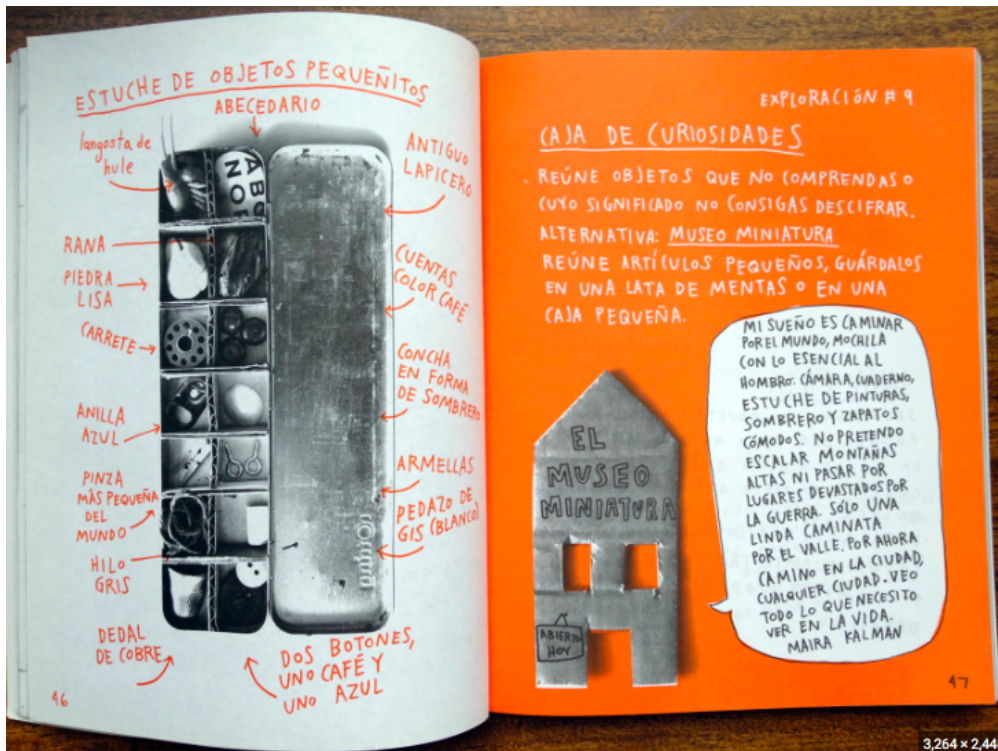 ESTUCHE DE OBJETOS PEQUEÑITOS
ABECEDARIO
langosta de
hule
ANTIGUO
LAPICERO
RANA
PIEDRA
LISA
CUENTAS
COLOR CAFÉ
CARRETE
CONCHA
EN FORMA
DE SOMBRERO
ANILLA
AZUL
ARMELLAS
PINZA
MÁS PEQUEÑA
DEL
MUNDO
PEDAZO DE
GIS (BLANCO)
HILO
GRIS
DEDAL
DE COBRE
DOS BOTONES,
UNO CAFÉ Y
UNO AZUL
46
EXPLORACIÓN # 9
CAJA DE CURIOSIDADES
REÚNE OBJETOS QUE NO COMPRENDAS O
CUYO SIGNIFICADO NO CONSIGAS DESCIFRAR.
ALTERNATIVA: MUSEO MINIATURA
REÚNE ARTÍCULOS PEQUEÑOS, GUÁRDALOS
EN UNA LATA DE MENTAS O EN UNA
CAJA PEQUEÑA.
EL
MUSEO
MINIATURA
ABIERTO
HOY
MI SUEÑO ES CAMINAR
POR EL MUNDO, MOCHILA
CON LO ESENCIAL AL
HOMBRO: CÁMARA, CUADERNO,
ESTUCHE DE PINTURAS,
SOMBRERO Y ZAPATOS
CÓMODOS. NO PRETENDO
ESCALAR MONTAÑAS
ALTAS NI PASAR POR
LUGARES DEVASTADOS POR
LA GUERRA. SÓLO UNA
LINDA CAMINATA
POR EL VALLE. POR AHORA
CAMINO EN LA CIUDAD,
CUALQUIER CIUDAD. VEO
TODO LO QUE NECESITO
VER EN LA VIDA.
MAIRA KALMAN
47
3,264 × 2,44